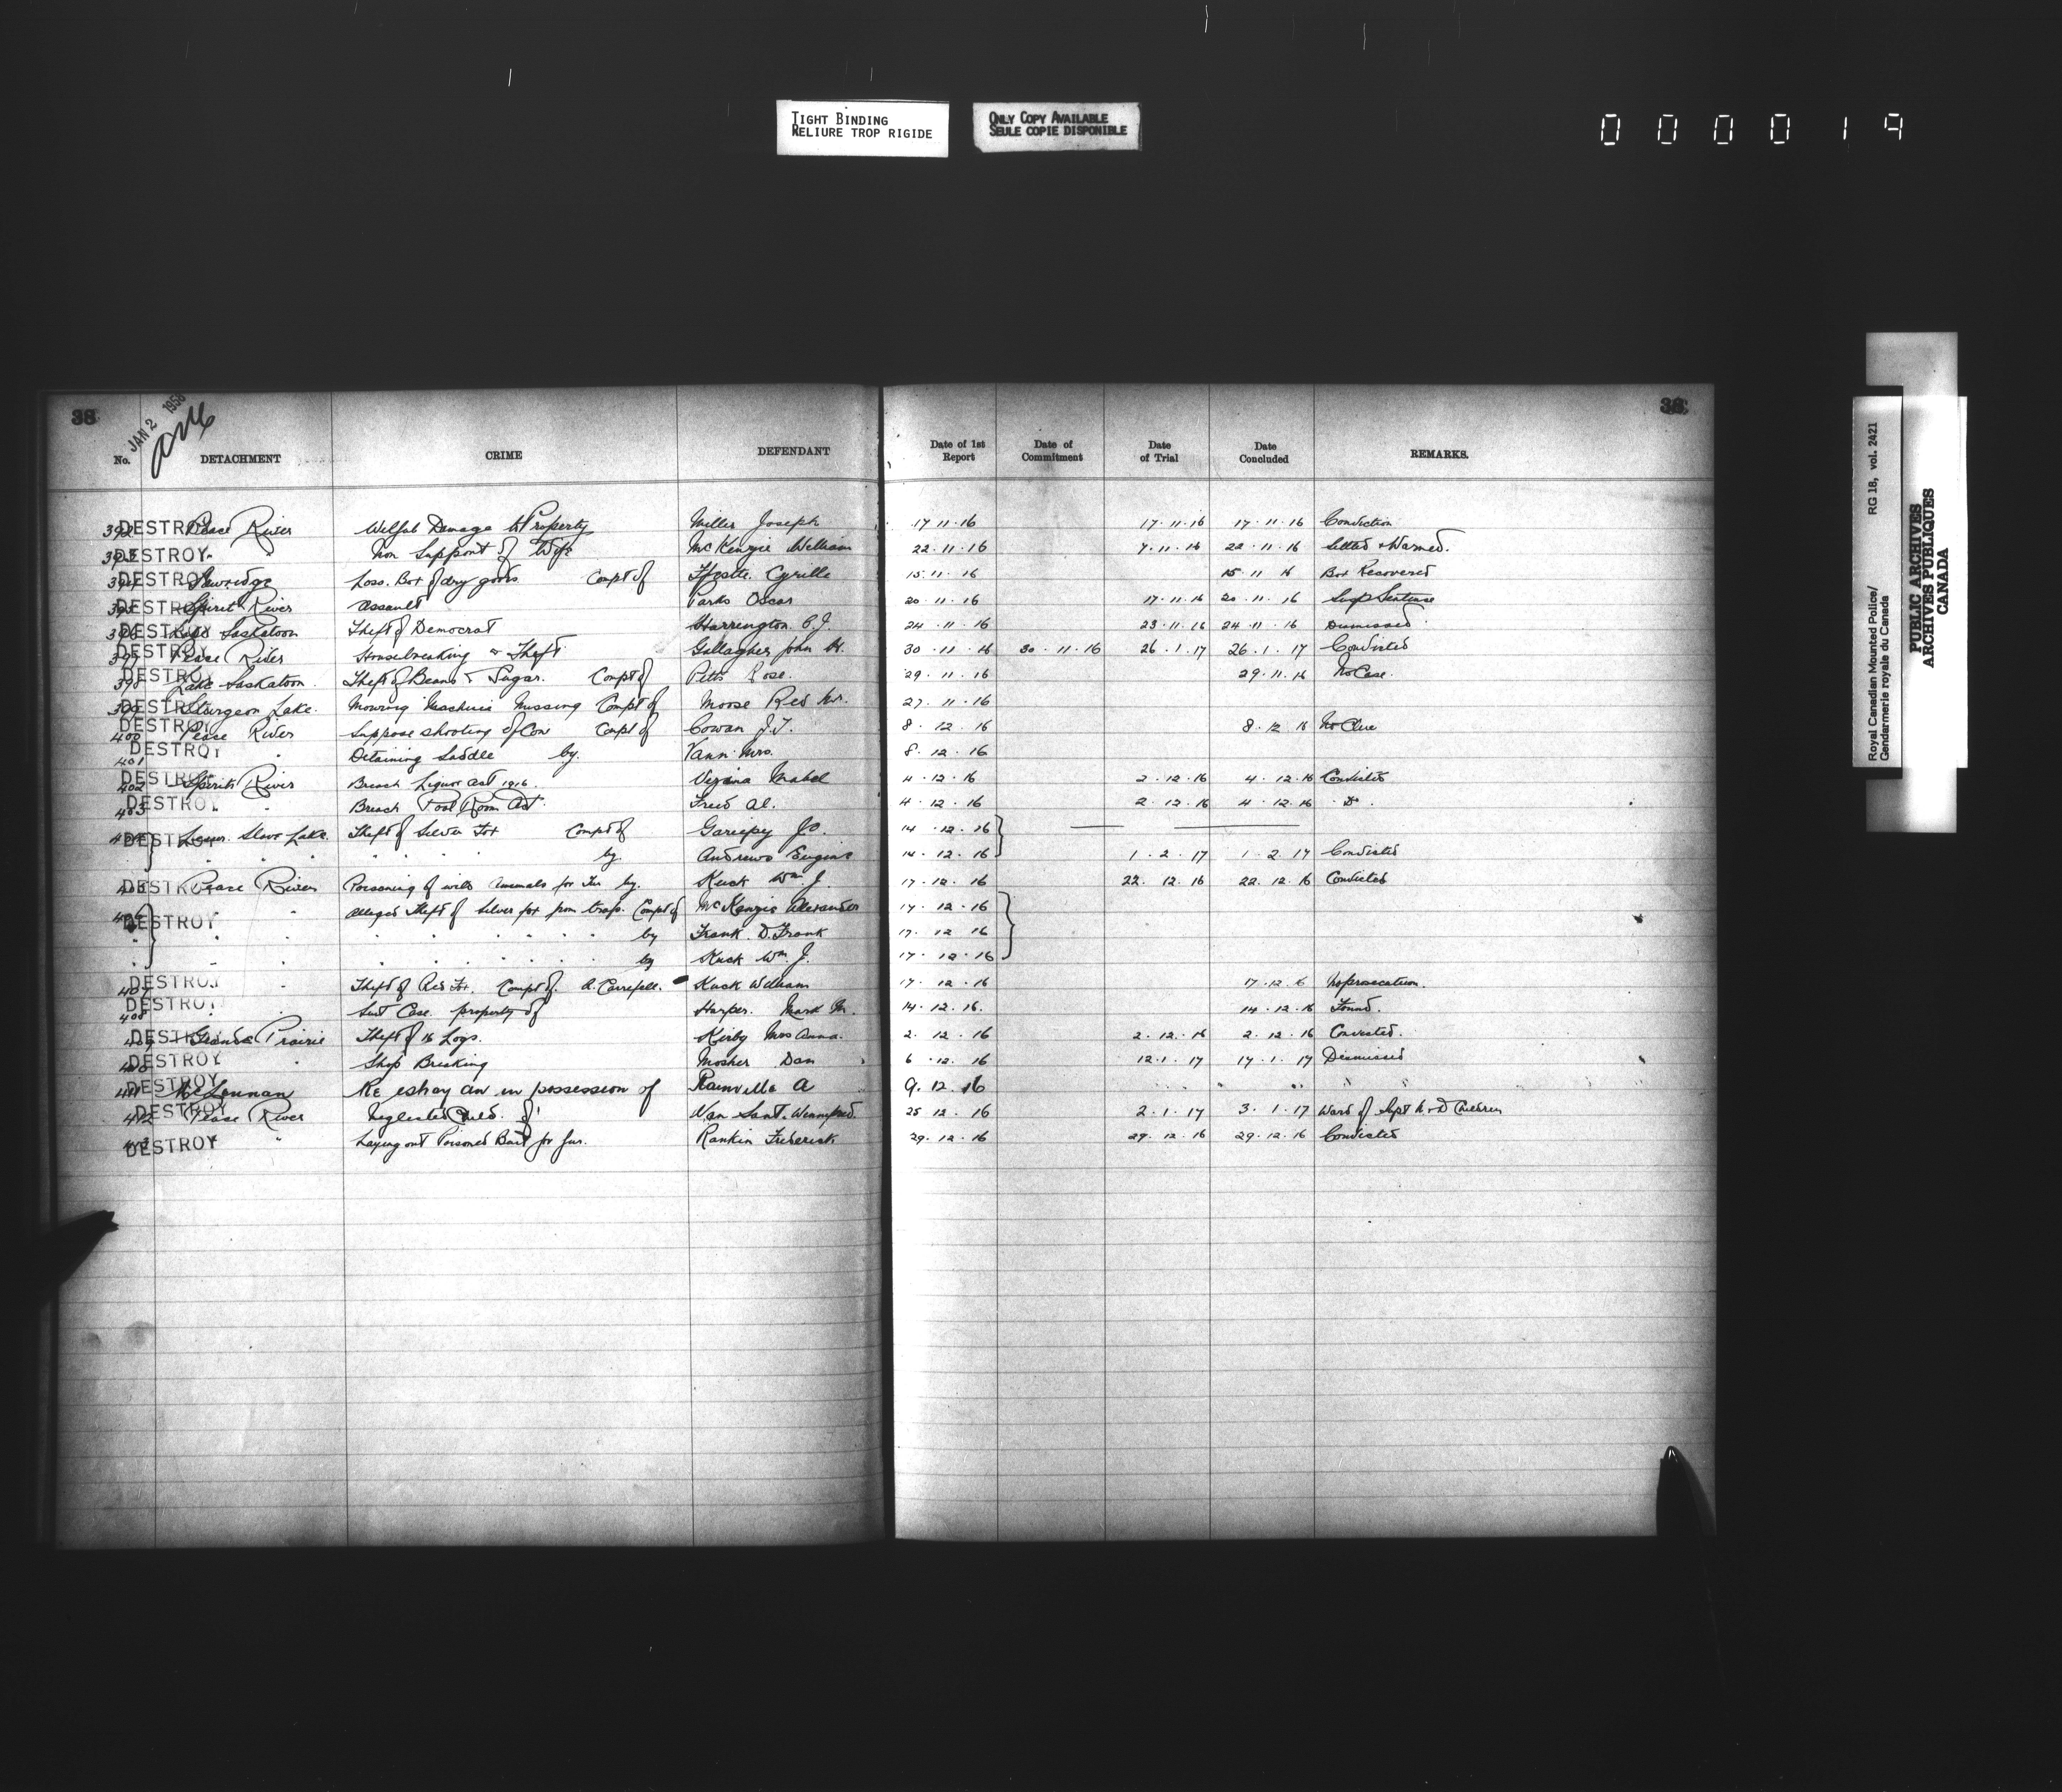 TIGHT BINDING
RELIURE TROP RIGIDE
ONLY COPY AVAILABLE
SEULE COPIE DISPONIBLE
0 0 0 0 1 9
38
JAN 2 1956
38
No. DETACHMENT CRIME DEFENDANT Date of 1st Report Date of Commitment Date of Trial Date Concluded REMARKS.
392 DESTROY Peace River Wilful Damage to Property Miller Joseph 17 11 16 17.11.16 17.11.16 Conviction
393 DESTROY " Non Support of Wife McKenzie William 22.11.16 7.11.16 22.11.16 Settled & Warned.
394 DESTROY Sawridge Loss. Box of dry goods Compt of Cyrille 15.11.16 15.11.16 Box Recovered
395 DESTROY Spirit River Assault Parks Oscar 20.11.16 17.11.16 20.11.16 Susp Sentence
396 DESTROY Lake Saskatoon Theft of Democrat Harrington 24.11.16 23.11.16 24.11.16 Dismissed
397 DESTROY Peace River Housebreaking & Theft Gallagher John H. 30.11.16 30.11.16 26.1.17 26.1.17 Convicted
398 DESTROY Lake Saskatoon Theft of Beans & Sugar. Compt of Pitts Rose. 29.11.16 29.11.16 No Case.
399 DESTROY Sturgeon Lake. Mowing Machine Missing Compt of Moose Red Mr. 27.11.16
400 DESTROY Peace River Suppose shooting of Cow Compt of Cowan J.T. 8.12.16 8.12.16 No Clue
401 DESTROY " Detaining Saddle by. Vann Mrs. 8.12.16
402 DESTROY Spirit River Breach Liquor Act 1916. Mabel 4.12.16 2.12.16 4.12.16 Convicted
403 DESTROY " Breach Pool Room Act. Fried Al. 4.12.16 2.12.16 4.12.16 Do.
404 DESTROY Lesser Slave Lake. Theft of Silver Fox Compt of Gariepy Jo. 14.12.16
" " " " " by Andrews Eugene 14.12.16 1.2.17 1.2.17 Convicted
405 DESTROY Peace River Poisoning of wild Animals for Fur by. Kuck Wm J. 17.12.16 22.12.16 22.12.16 Convicted
406 DESTROY " Alleged Theft of Silver fox from traps. Compt of McKenzie Alexander 17.12.16
" " " " " by Frank D. Frank 17.12.16
" " " " " by Kuck Wm. J. 17.12.16
407 DESTROY " Theft of Red Fox. Compt of. A. Kuck William 17.12.16 17.12.6 No prosecution.
408 DESTROY " Suit Case. property of Harper. Mark M. 14.12.16. 14.12.16 Found.
409 DESTROY Grande Prairie Theft of 16 Logs. Kirby Mrs Anna. 2.12.16 2.12.16 2.12.16 Convicted.
410 DESTROY " Shop Breaking Mosher Dan 6.12.16 12.1.17 17.1.17 Dismissed
411 DESTROY McLennan Re estray in possession of Rainville A 9.12.16 " " "
412 DESTROY Peace River Neglected Child. of Van Sant. Winnifred. 25.12.16 2.1.17 3.1.17 Ward of Supt N & D Children
413 DESTROY " Laying out Poisoned Bait for fur. Rankin Frederick 29.12.16 29.12.16 29.12.16 Convicted
Royal Canadian Mounted Police/ RG 18, vol. 2421
Gendarmerie royale du Canada
PUBLIC ARCHIVES
ARCHIVES PUBLIQUES
CANADA